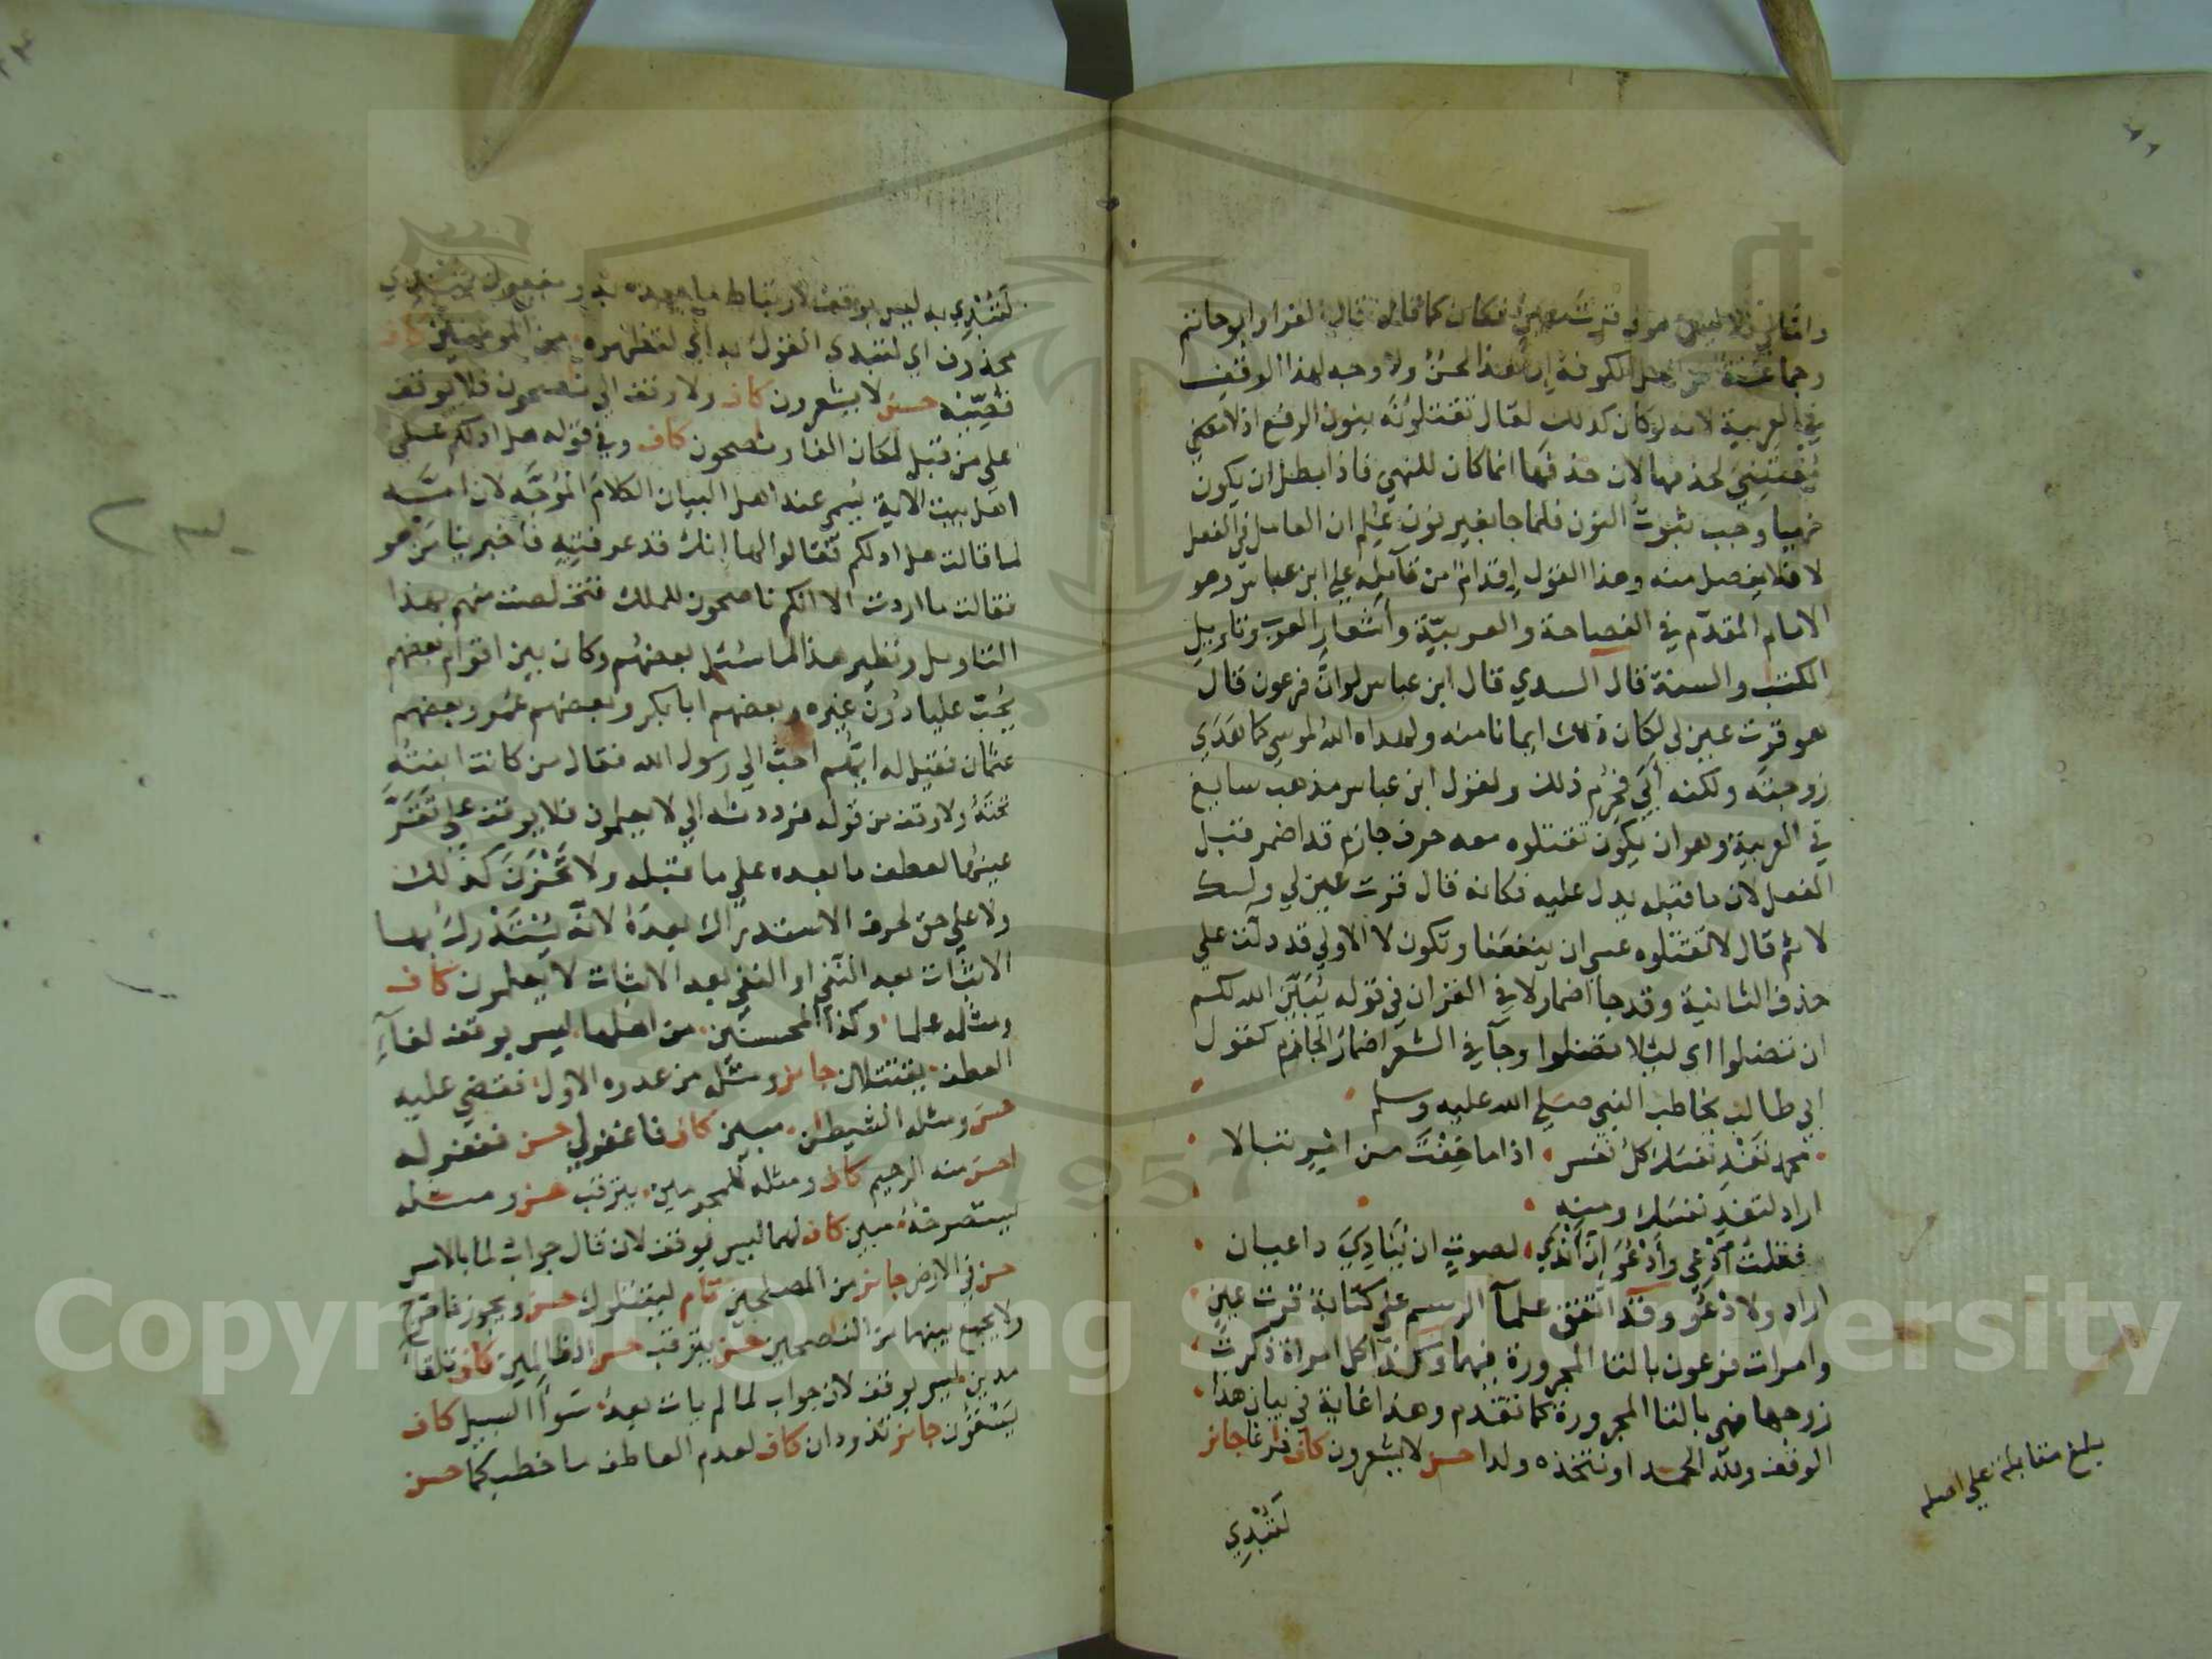 واما لي فلا ليس هو لي قرت عين فكان كما قال قال الفراء وابو حاتم
وجماعة من اهل الكوفة ان هذا لحن ولا وجه لهذا الوقف
في العربية لانه لو كان كذلك لقال تقتلونه بنون الرفع اذ لا مقتضي
لحذفها لان حذفها انما كان للنهي فاذا بطل ان يكون
نهيا وجب ثبوت النون فلما جا بغير نون علم ان العامل في الفعل
لا فلا يفصل منه وهذا القول إقدام من قآيله علي ابن عباس وهو
الامام المقدّم في الفصاحة والعربيّة وأشعار العرب وتاويل
الكتب والسنة قال السدي قال ابن عباس لو ان فرعون قال
هو قرت عين لي لكان ذلك ايمانا منه ولهداه الله لموسي كما هَدَي
زوجتَه ولكنه أبَي فحُرِم ذلك ولقول ابن عباس مذهب سايغ
في العربية وهو ان يكون تقتلوه معه حرف جازم قد اضمر قبل
الفعل لان ما قبله يدل عليه فكانه قال قرت عين لي ولك
لا ثم قال لا تقتلوه عسي ان ينفعَنا وتكون لا الاولي قد دلّت علي
حذف الثانية وقد جا اضمار لا في القران في قوله يُبَيِّن الله لكم
ان تضلوا اي ليلا تضلوا وجآ في الشعر اضمار الجازم كقول
ابي طالب يخاطب النبي صلي الله عليه وسلم
محمد تَفْدِ نفسَك كلُّ نفس اذا ما خِفْتَ من امْرٍ تبالا
اراد لتفدِ نفسك ومنه
فقلتُ ادْعِي وأدْعُ إنّ أندَي لصوتٍ ان يُنادِيَ داعيان
اراد ولادْعُ وقد اتفق علمآ الرسم علي كتابة قرت عين
وامرات فرعون بالتا المجرورة فيهما وكذا كل امراة ذكرت
زوجها فهي بالتا المجرورة كما تقدم وهذا غاية في بيان هذا
الوقف ولله الحمد او نتخذه ولدا حسن لا يشعرون كاف فارغا جائز
لَتُبْدِي
بلغ مقابلة علي اصله
لَتُبْدِي به ليس بوقف لارتباط ما بعده به ومفعول لتبدي
محذوف اي لتبدي القول به اي لتظهره من المومنين كاف
قُصِّيه حسن لا يشعرون كاف ولا وقف الي نصحون فلا يوقف
علي من قبل لمكان الفا ونصحون كاف وفي قوله هل ادلكم علي
اهل بيت الاية يسمي عند اهل البيان الكلام الموجَّه لان امَّه
لما قالت هل ادلكم فقالوا لها إنك قد عرفتِيه فأخبرينا مَن هو
فقالت ما اردت الا انكم ناصحون للملك فتخلصت منهم بهذا
التاويل ونظير هذا لما سُئل بعضهُم وكان بين اقوام بعضهم
يُحِبّ عليا دُونَ غيره وبعضهم ابا بكر وبعضهم عُمر وبعضهم
عثمان فقيل له ايُّهم احبّ الي رسول الله فقال من كانت ابنتُه
تحتَهُ ولا وقف من قوله فرددنه الي لا يعلمون فلا يوقف علي تَقَرَّ
عينُها لعطف ما بعده علي ما قبله ولا تَحْزَنَ كذلك
ولا علي حق لحرف الاستدراك بعدَهُ لانّه يُسْتَدْرَك بها
الاثبات بعد النَّفي او النفي بعد الاثبات لا يَعلمون كاف
ومثله علما وكذا المحسنين من اهلها ليس بوقف لفآءِ
العطف يقتتلان جائز ومثله من عدوه الاول فقضي عليه
حسن ومثله الشيطن مبين كاف فاغفر لي حسن فغفر له
احسن منه الرحيم كاف ومثله للمجرمين يترقب حسن ومثله
يستصرخهُ مبين كاف لهما ليس بوقف لان قال جواب لما بالامس
حسن في الارض جائز من المصلحين تام ليقتلوك حسن ويجوز فاخرج
ولا يجمع بينهما من النصحين حسن يترقب حسن الظالمين كاف تلقآءَ
مدين ليس بوقف لان جواب لما لم يات بعدُ سَوآ السبيل كاف
يَسْقُون جائز تذودان كاف لعدم العاطف ما خطبكما حسن